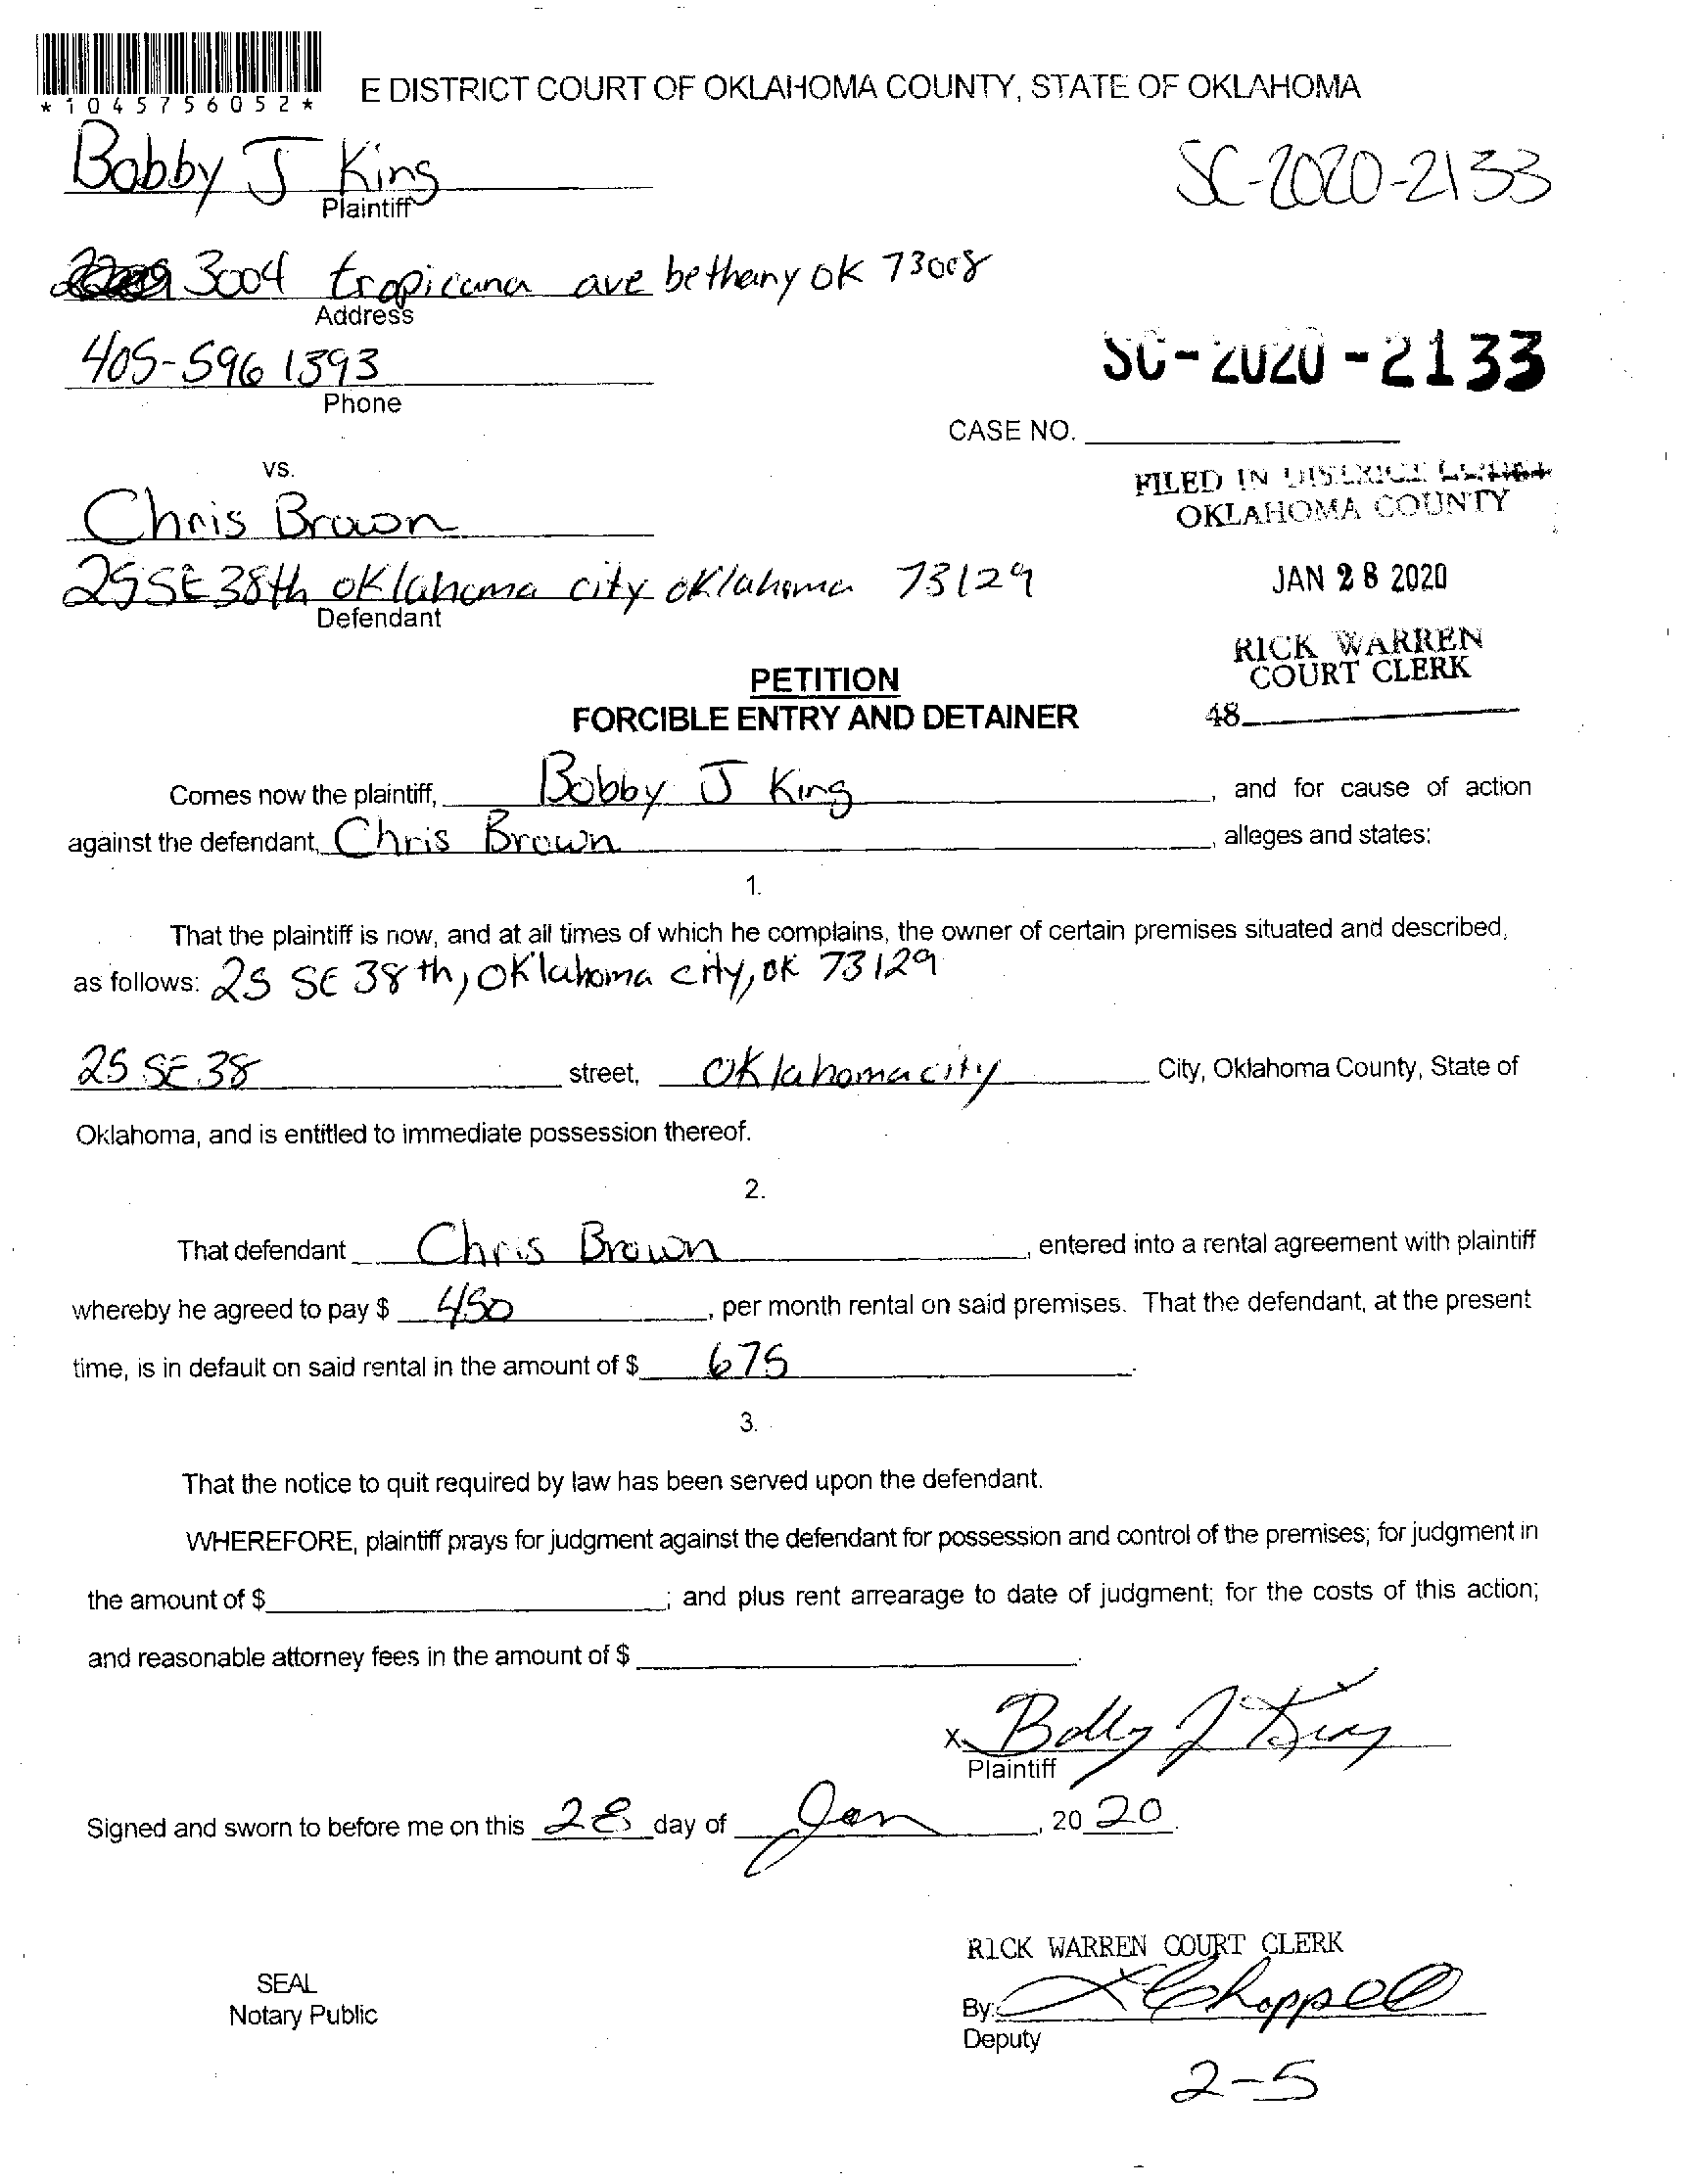 *1045756052*
E DISTRICT COURT OF OKLAHOMA COUNTY, STATE OF OKLAHOMA
Bobby J King
Plaintiff
SC-2020-2133
3004 tropicana ave bethany OK 73008
Address
405-596 1393
Phone
SC-2020-2133
CASE NO.
vs.
FILED IN DISTRICT COURT
OKLAHOMA COUNTY
Chris Brown
25 SE 38th oklahoma city oklahoma 73129
Defendant
JAN 28 2020
RICK WARREN
COURT CLERK
48
PETITION
FORCIBLE ENTRY AND DETAINER
Comes now the plaintiff, Bobby J King, and for cause of action
against the defendant, Chris Brown, alleges and states:
1.
That the plaintiff is now, and at all times of which he complains, the owner of certain premises situated and described,
as follows: 25 SE 38th, Oklahoma city, OK 73129
25 SE 38 street, Oklahoma city City, Oklahoma County, State of
Oklahoma, and is entitled to immediate possession thereof.
2.
That defendant Chris Brown, entered into a rental agreement with plaintiff
whereby he agreed to pay $ 450, per month rental on said premises. That the defendant, at the present
time, is in default on said rental in the amount of $ 675.
3.
That the notice to quit required by law has been served upon the defendant.
WHEREFORE, plaintiff prays for judgment against the defendant for possession and control of the premises; for judgment in
the amount of $ ; and plus rent arrearage to date of judgment; for the costs of this action;
and reasonable attorney fees in the amount of $ .
x Bobby J King
Plaintiff
Signed and sworn to before me on this 28 day of Jan, 20 20.
RICK WARREN COURT CLERK
SEAL
Notary Public
By: Chappell
Deputy
2-5